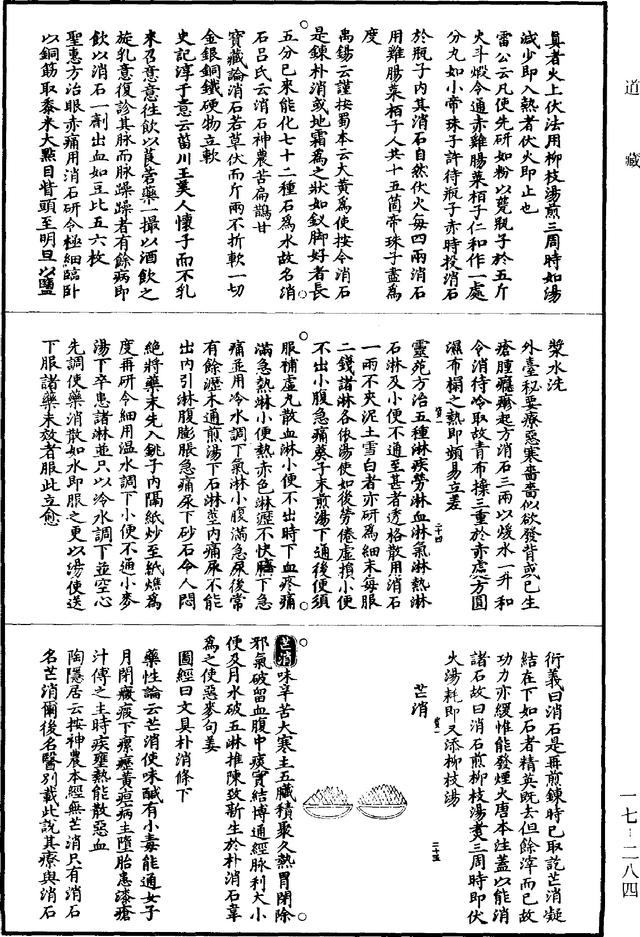 道藏
真者火上伏法用柳枝湯煎三周時如湯
減少即入熱者伏火即止也
雷公云凡使先研如粉以甆瓶子於五斤
火斗煅令通赤雞腸菜栢子仁和作一處
分丸如小帝珠子許待瓶子赤時投消石
於瓶子内其消石自然伏火每四兩消石
用雞腸菜栢子人共十五箇帝珠子盡為
度
禹錫云謹按蜀本云大黃為使按今消石
是鍊朴消或地霜為之狀如釵脚好者長
五分已來能化七十二種石為水故名消
石吕氏云消石神農苦扁鵲甘
寶藏論消石若草伏而斤兩不折軟一切
金銀銅鐵硬物立軟
史記淳于意云菑川王美人懷子而不乳
來召意意往飲以莨菪藥一撮以酒飲之
旋乳意復診其脉而脉躁躁者有餘病即
飲以消石一劑出血如豆比五六枚
聖惠方治眼赤痛用消石研令極細臨卧
以銅筯取黍米大點目眥頭至明旦以鹽
漿水洗
外臺秘要療惡寒嗇嗇似欲發背或已生
瘡腫癮疹起方消石三兩以煖水一升和
令消待冷取故青布揲三重於赤處方圓
濕布搨之熱即頻易立差
靈苑方治五種淋疾勞淋血淋氣淋熱淋
石淋及小便不通至甚者透格散用消石
一兩不夾泥土雪白者亦研為細末每服
二錢諸淋各依湯使如後勞倦虛損小便
不出小腹急痛葵子末煎湯下通後便須
服補虛丸散血淋小便不出時下血疼痛
滿急熱淋小便熱赤色淋瀝不快臍下急
痛並用冷水調下氣淋小腹滿急尿後常
有餘瀝木通煎湯下石淋莖内痛尿不能
出内引淋腹膨脹急痛尿下砂石令人悶
絶將藥末先入銚子内隔紙炒至紙燋為
度再研令細用温水調下小便不通小麥
湯下卒患諸淋並只以冷水調下並空心
先調使藥消散如水即服之更以湯使送
下服諸藥未效者服此立愈
衍義曰消石是再煎鍊時已取訖芒消凝
結在下如石者精英既去但餘滓而已故
功力亦緩惟能發煙火唐本注蓋以能消
諸石故曰消石煎柳枝湯煑三周時即伏
火湯耗即又添柳枝湯
芒消
芒消味辛苦大寒主五臟積聚久熱胃閉除
邪氣破留血腹中痰實結搏通經脉利大小
便及月水破五淋推陳致新生於朴消石韋
為之使惡麥句姜
圖經曰文具朴消條下
藥性論云芒消使味鹹有小毒能通女子
月閉癥瘕下瘰癧黃疸病主墮胎患漆瘡
汁傅之主時疾壅熱能散惡血
陶隱居云按神農本經無芒消只有消石
名芒消爾後名醫別載此說其療與消石
一七-二八四